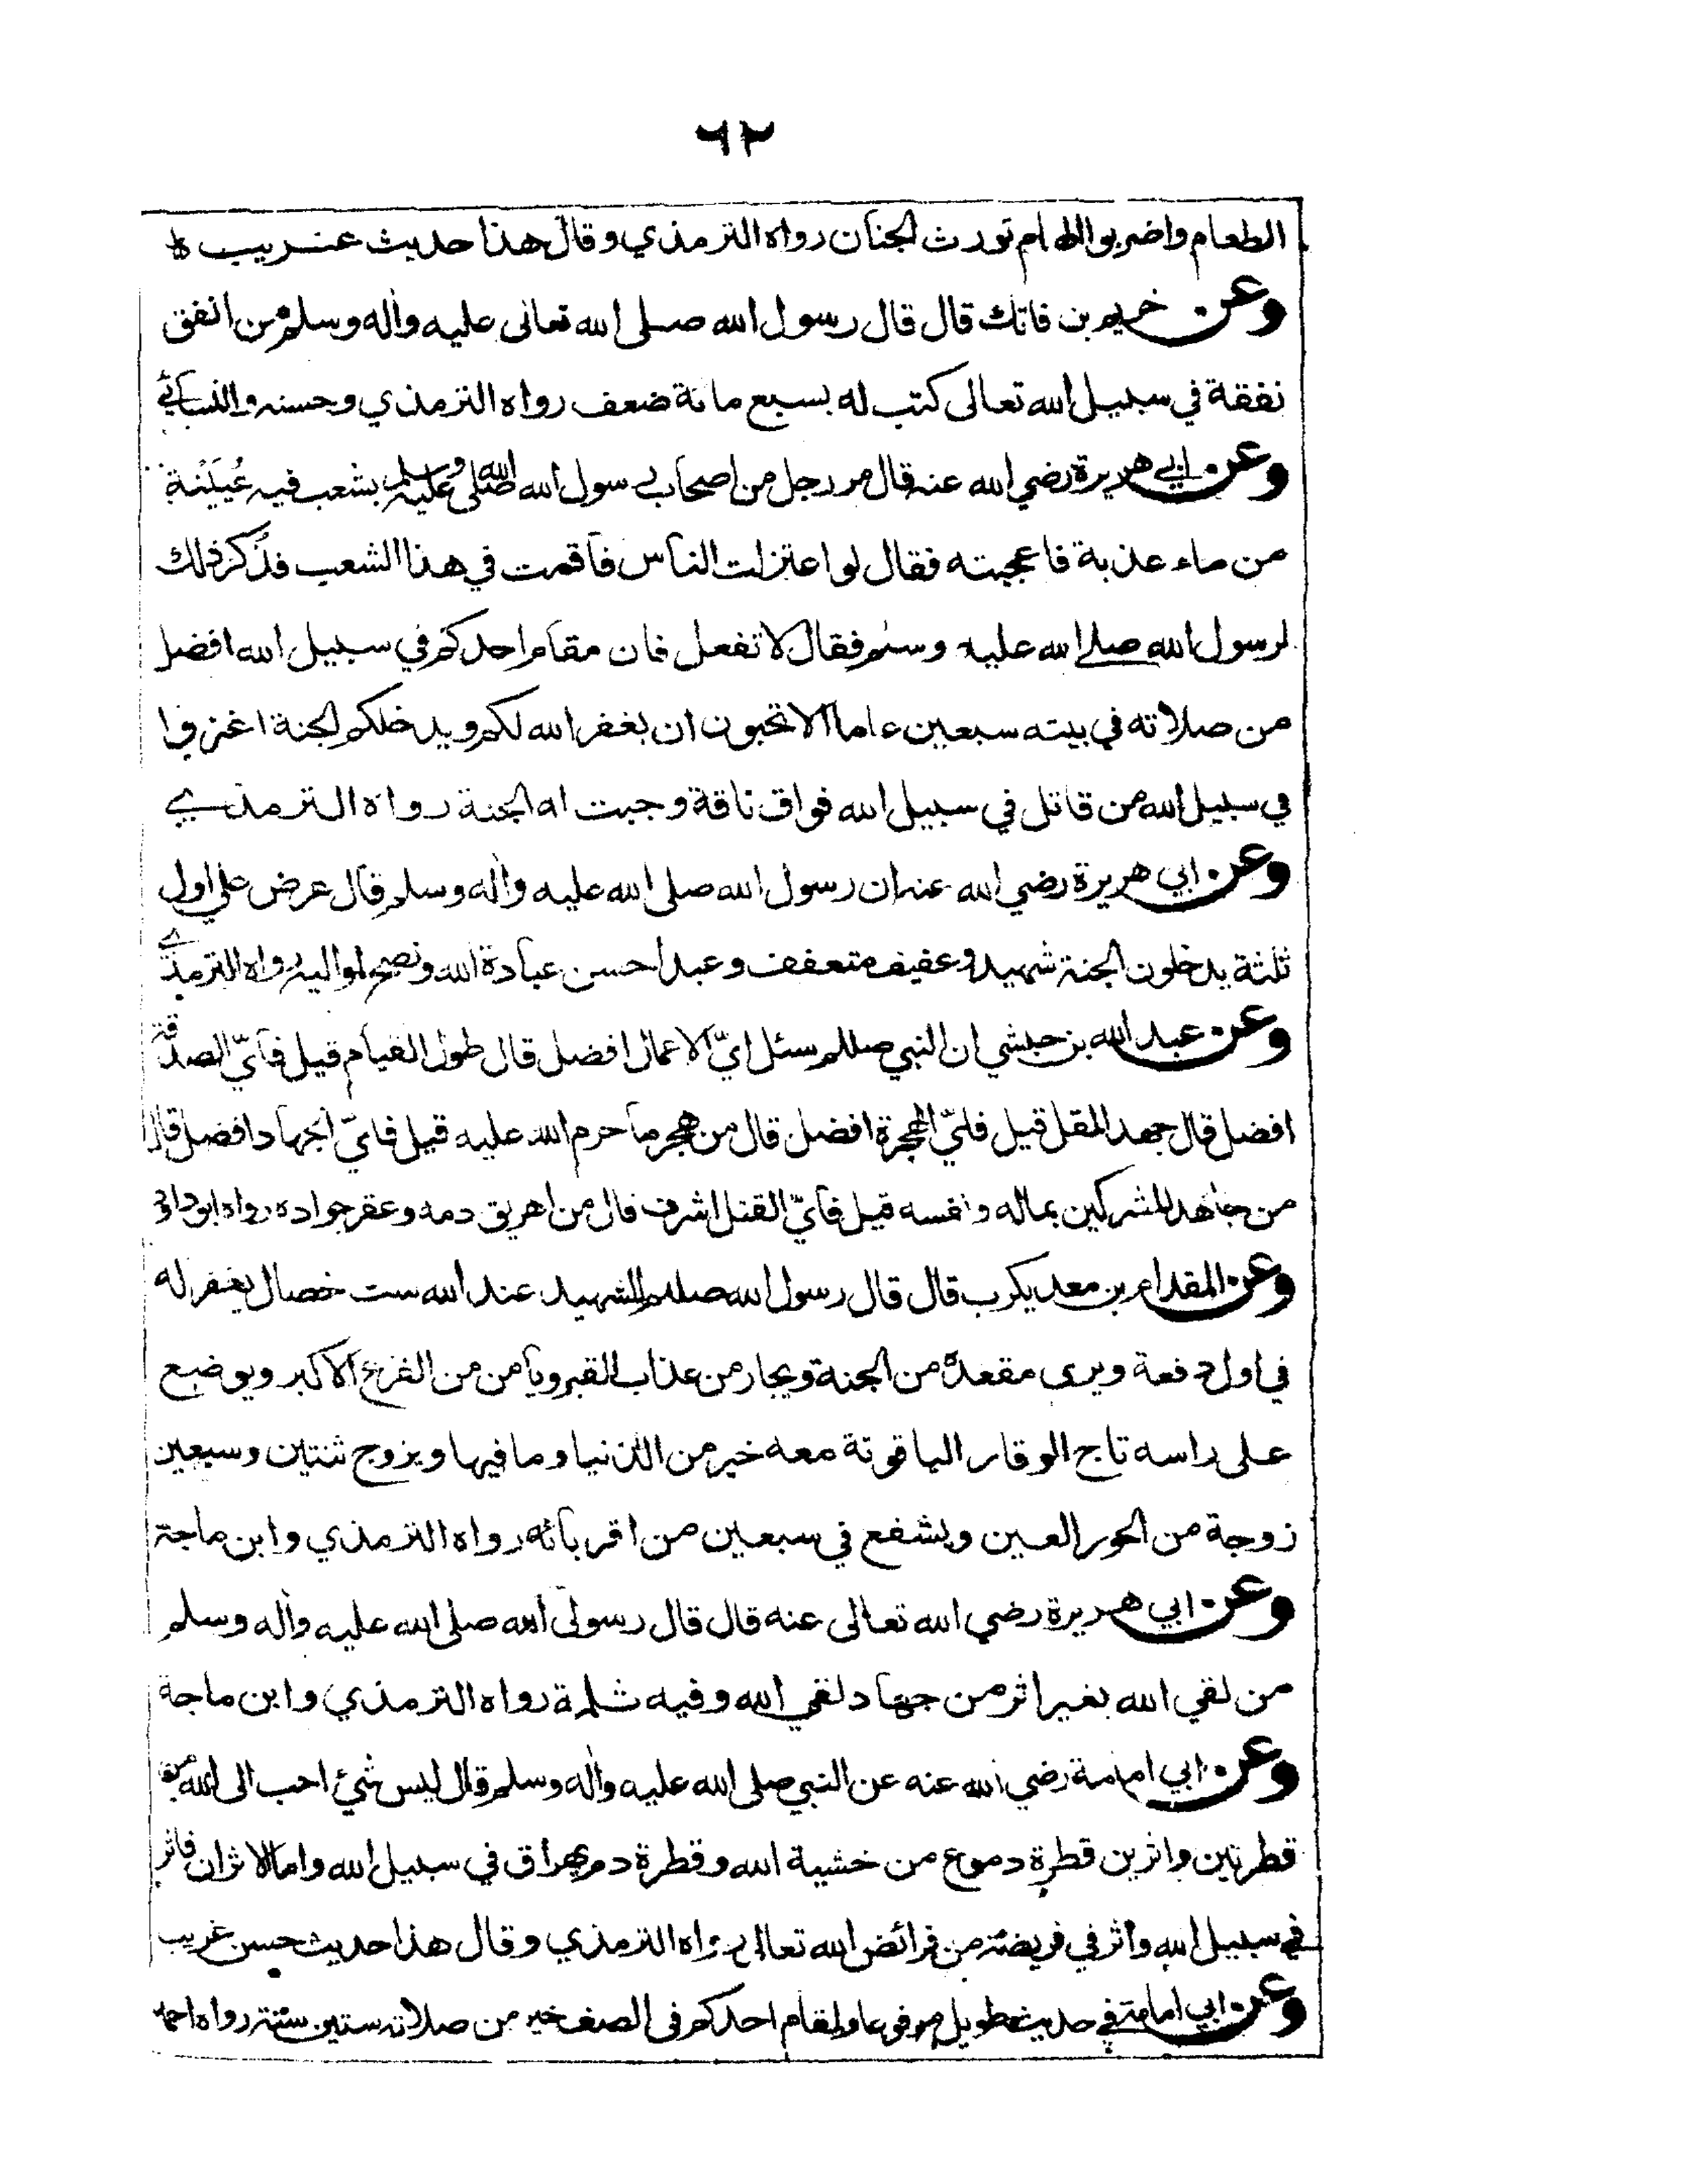 ٦٢
الطعام واضربوا الهام تورث الجنان رواه الترمذي وقال هذا حديث غريب ه
وعن خريم بن فاتك قال قال رسول الله صلى الله تعالى عليه واله وسلم من انفق
نفقة في سبيل الله تعالى كتب له بسبع مائة ضعف رواه الترمذي وحسنه والنسائي
وعن ابي هريرة رضي الله عنه قال مر رجل من اصحاب رسول الله صلى الله عليه وسلم بشعب فيه عُيَيْنة
من ماء عذبة فاعجبته فقال لو اعتزلت الناس فاقمت في هذا الشعب فذكر ذلك
لرسول الله صلى الله عليه وسلم فقال لا تفعل فان مقام احدكم في سبيل الله افضل
من صلاته في بيته سبعين عاما الا تحبون ان يغفر الله لكم ويدخلكم الجنة اغزوا
في سبيل الله من قاتل في سبيل الله فواق ناقة وجبت له الجنة رواه الترمذي
وعن ابي هريرة رضي الله عنه ان رسول الله صلى الله عليه واله وسلم قال عرض علي اول
ثلثة يدخلون الجنة شهيد وعفيف متعفف وعبد احسن عبادة الله ونصح لمواليه رواه الترمذي
وعن عبد الله بن حبشي ان النبي صللم سئل ايّ الاعمال افضل قال طول القيام قيل فايّ الصدقة
افضل قال جهد المقل قيل فايّ الهجرة افضل قال من هجر ما حرم الله عليه قيل فايّ الجهاد افضل قال
من جاهد المشركين بماله ونفسه قيل فايّ القتل اشرف قال من اهريق دمه وعقر جواده رواه ابو داؤد
وعن المقدام بن معديكرب قال قال رسول الله صللم للشهيد عند الله ست خصال يغفر له
في اول دفعة ويرى مقعده من الجنة ويجار من عذاب القبر ويامن من الفزع الاكبر ويوضع
على راسه تاج الوقار الياقوتة معه خير من الدنيا وما فيها ويزوج ثنتين وسبعين
زوجة من الحور العين ويشفع في سبعين من اقربائه رواه الترمذي وابن ماجة
وعن ابي هريرة رضي الله تعالى عنه قال قال رسول الله صلى الله عليه واله وسلم
من لقي الله بغير اثر من جهاد لقي الله وفيه ثلمة رواه الترمذي وابن ماجة
وعن ابي امامة رضي الله عنه عن النبي صلى الله عليه واله وسلم قال ليس شيئ احب الى الله من
قطرتين واثرين قطرة دموع من خشية الله وقطرة دم يهراق في سبيل الله واما الاثران فاثر
في سبيل الله واثر في فريضة من فرائض الله تعالى رواه الترمذي وقال هذا حديث حسن غريب
وعن ابي امامة في حديث طويل مرفوعا ولمقام احدكم في الصف خير من صلاته ستين سنة رواه احمد